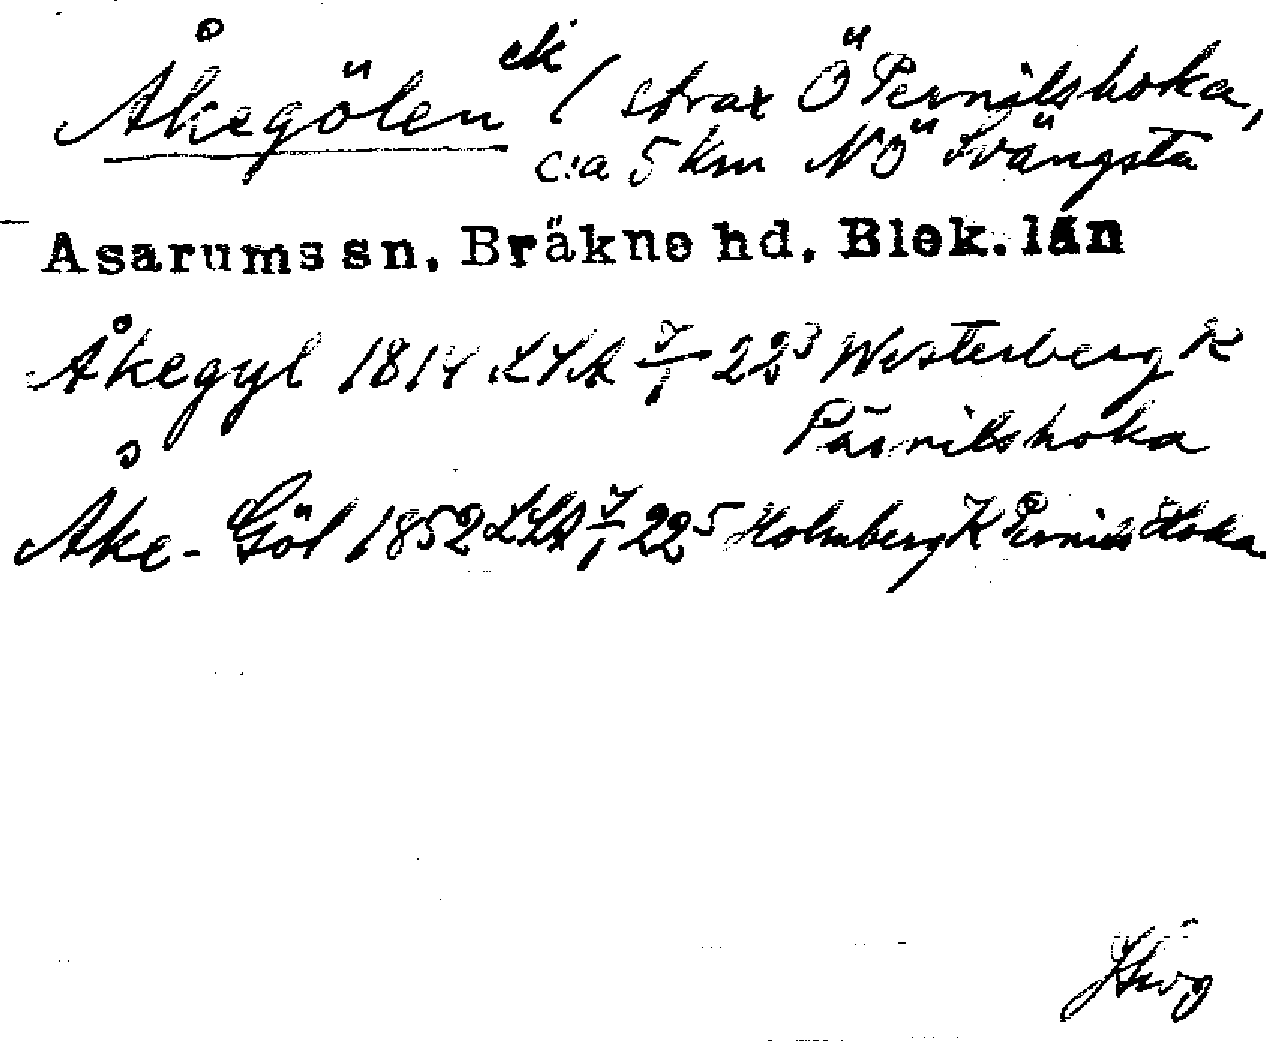 Åkegölen ek / strax Ö Pernilshoka,
c:a 5 km NÖ Svängsta
Asarums sn. Bräkne hd. Blek. län
Åkegyl 1814 LSA 22³ Westerberg K
Pärnilshoka
Åke-Göl 1852 LSA 22⁵ Holmberg K Pernils Hoka